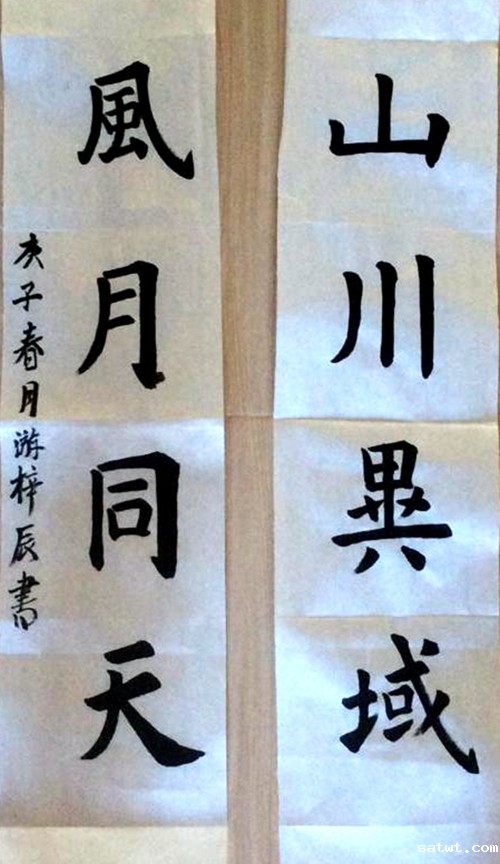 山川異域
風月同天
庚子春月游梓辰書
satwt.com